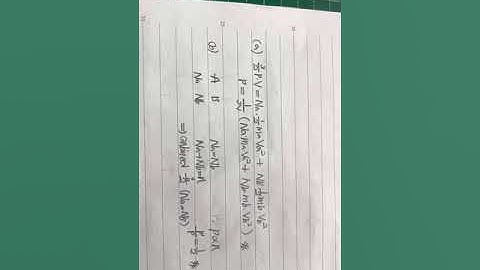 (a) 3/2 P·V = Na·1/2 ma Va² + Nb 1/2 mb Vb²
P = 1/3V (Na ma Va² + Nb mb Vb²) #
(b) A B Na=Nb ∵ P∝n
Na Nb Na+Nb=n
⇒ (Na=Nb) P'/P = 1/2 #